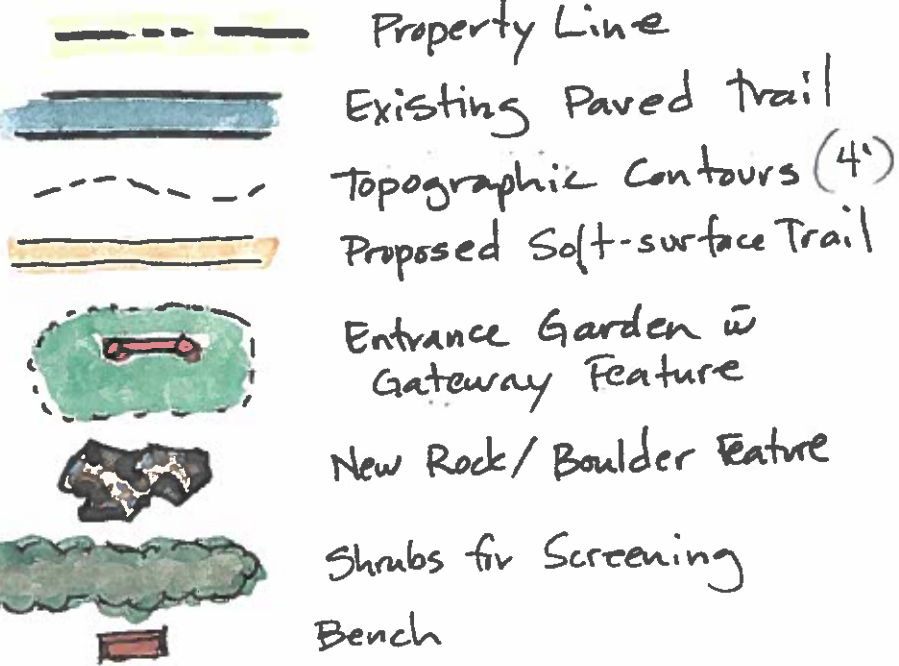 Property Line
Existing Paved Trail
Topographic Contours (4')
Proposed Soft-surface Trail
Entrance Garden w̄
Gateway Feature
New Rock/Boulder Feature
Shrubs for Screening
Bench